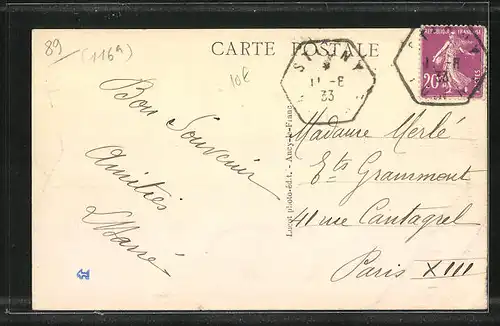 89 (116a)
CARTE POSTALE
10€
ST
11-8
33
REPUBLIQUE FRANCAISE
20c
11-8
33
Bon Souvenir
Amitiés
Lucot photo-édt. - Ancy-le-Franc
Madame Merlé
Ets Grammont
41 rue Cantagrel
Paris XIII